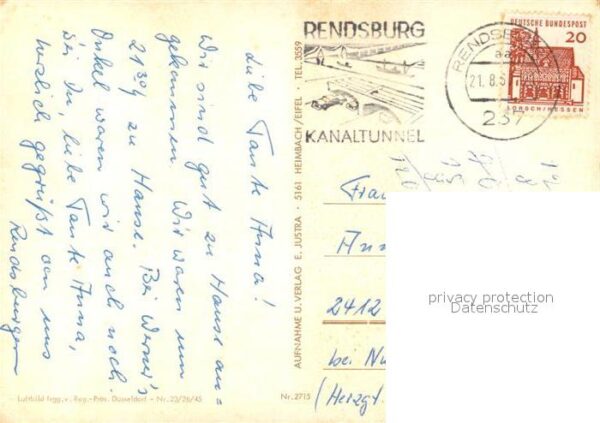 Liebe Tante Anna!
Wir sind gut zu Hause an-
gekommen. Wir waren um
21 30 zu Hause. Bei Werner's
Onkel waren wir auch noch.
Sei Du, liebe Tante Anna,
herzlich gegrüßt von uns
Rendsburgern
Luftbild frgg. v. Reg.-Präs. Düsseldorf - Nr. 23/26/45
AUFNAHME U. VERLAG E. JUSTRA · 5161 HEIMBACH/EIFEL · TEL. 3559
Nr. 2715
RENDSBURG
KANALTUNNEL
RENDSB
21. 8.
237
DEUTSCHE BUNDESPOST
20
LORSCH/HESSEN
Frau
2412
bei
(Herzgt.
privacy protection
Datenschutz